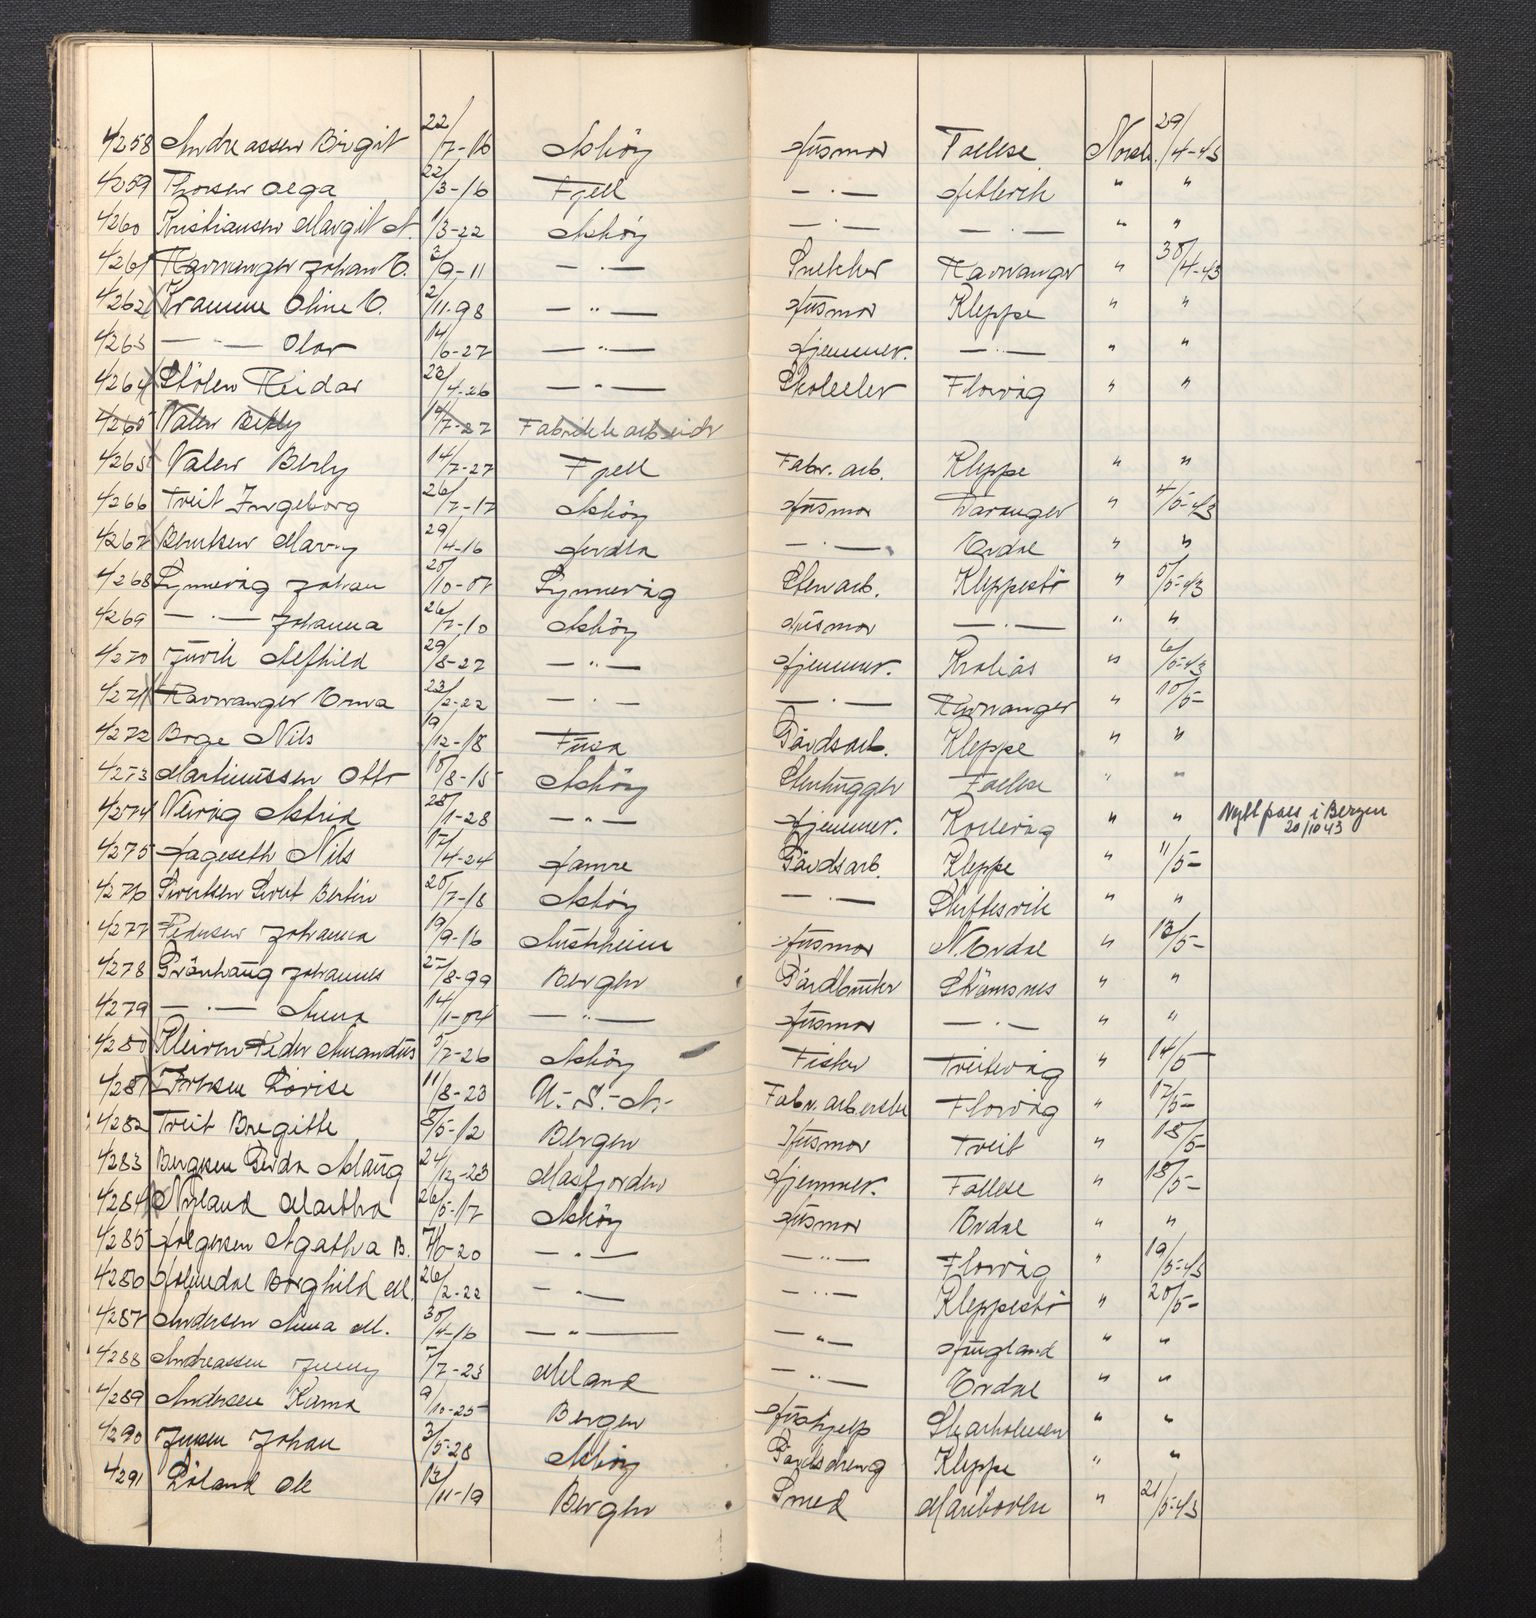 4258 Andreassen Birgit 22/7-16 Asköy Husmor Follese Norsk 29/4-43
4259 Thorsen Olga 22/3-16 Fjell — · — Hetlevik " "
4260 Kristiansen Margit A. 1/3-22 Asköy — · — — · — " "
4261 Ravnanger Johan O. 2/9-11 — · — Snekker Ravnanger " 30/4-43
4262 Kramme Oline O. 2/11-98 — " — Husmor Kleppe " "
4263 — · — Olav 14/6-27 — " — Hjemmev. — · — " "
4264 Stölen Reidar 23/4-26 — " — Skoleelev Florvåg " "
4265 Valen Betty 14/7-27 Fabrikkarbeider
4265 Valen Berly 14/7-27 Fjell Fabr. arb. Kleppe " "
4266 Tveit Ingeborg 26/7-17 Asköy Husmor Haranger " 4/5-43
4267 Berntsen Mary 29/4-16 Herdla — · — Erdal " "
4268 Lynnevåg Johan 20/10-07 Lynnevåg Stenarb. Kleppestö " 5/5-43
4269 — · — Johanna 26/7-10 Asköy Husmor — · — " "
4270 Juvik Alfhild 29/8-27 — " — Hjemmev. Krokås " 6/5-43
4271 Ravnanger Erna 23/2-22 — · — — · — Ravnanger " 10/5-
4272 Boge Nils 19/12-18 Fusa Gårdsarb. Kleppe " "
4273 Martinussen Otto 10/8-15 Asköy Stenhugger Follese " "
4274 Nevig Astrid 28/1-28 — " — Hjemmev. Kollevåg " " Nytt pass i Bergen 20/10 43
4275 Hageseth Nils 17/4-24 Hamre Gårdsarb. Kleppe " 11/5-
4276 Sivertsen Sivert Bertin 20/7-18 Asköy — · — Skiftesvik " "
4277 Pedersen Johanna 19/9-16 Austrheim Husmor N. Erdal " 13/5-
4278 Grönhaug Johannes 27/8-99 Bergen Gårdbruker Strömsnes " "
4279 — · — Anna 14/1-04 — " — Husmor — · — " "
4280 Kleiven Peder Amandus 5/7-26 Asköy Fisker Tveitevåg " 14/5-
4281 Lovise 11/8-23 U.-S.-A.- Fabr. arberske Florvåg " 17/5-
4282 Tveit Bregitte 8/5-12 Bergen Husmor Tveit " 18/5-
4283 Bergsen Gerda Aslaug 24/12-23 Masfjorden Hjemmev. Follese " 18/5-
4284 Nyland Martha 26/5-17 Asköy Husmor Erdal " "
4285 Holgersen Agatha B. 7/6-20 — " — — " — Florvåg " 19/5-43
4286 Holmedal Borghild M. 26/2-22 — " — — " — Kleppestö " 20/5-
4287 Andersen Anna M. 30/4-16 — " — — " — Haugland " "
4288 Andreassen Jenny 7/7-23 Meland — " — Erdal " "
4289 Andersen Karna 9/10-25 Bergen Hushjelp Skarholmen " "
4290 Jensen Johan 3/5-28 Asköy Gårdsdreng Kleppe " "
4291 Röland Ole 13/11-19 Bergen Smed Marikoven " 21/5-43